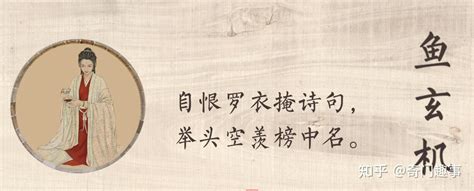 鱼玄机
自恨罗衣掩诗句，
举头空羡榜中名。
知乎 @奇门趣事